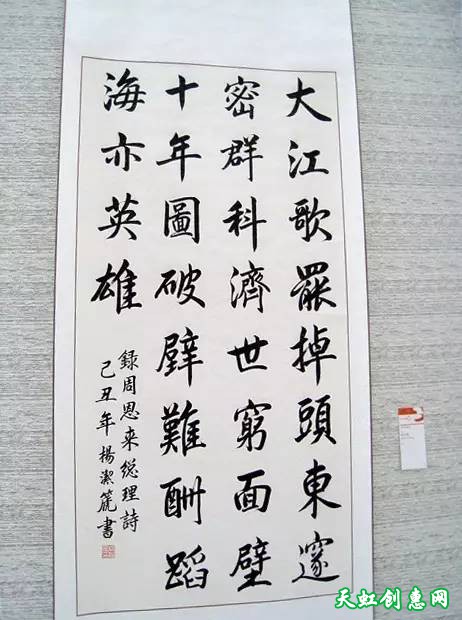 大江歌罷掉頭東邃
密群科濟世窮面壁
十年圖破壁難酬蹈
海亦英雄
錄周恩来総理詩
己丑年楊潔篪書
天虹创惠网